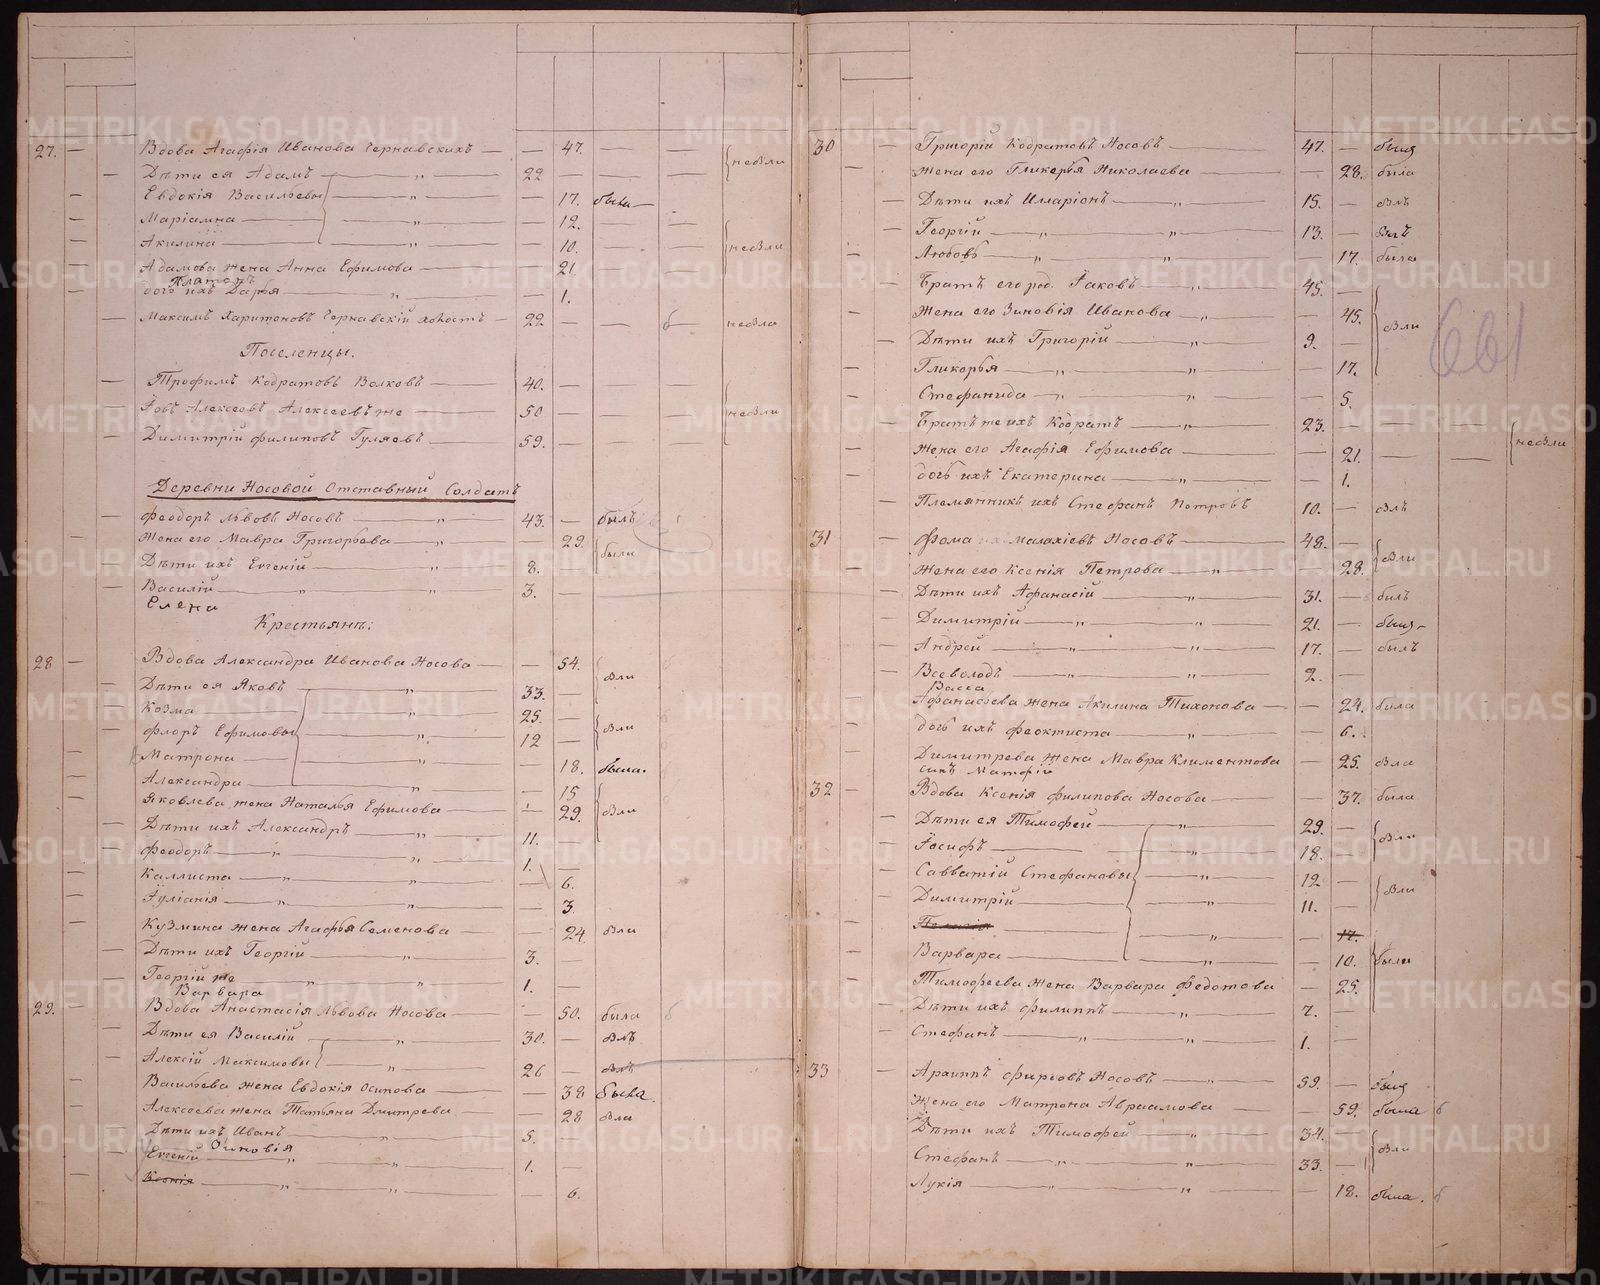 27. Вдова Агафія Иванова Чернавскихъ 47. невли
Дѣти ея Адамъ „ 22
Евдокія Васильевы „ 17. была
Маріамна „ 12.
Акилина „ 10. невли
Адамова жена Анна Ефимова 21.
Платонъ
дочь ихъ Дарья „ 1.
Максимъ Харитоновъ Чернавскій холостъ 22 б невла
Поселенцы.
Трофимъ Кодратовъ Волковъ 40.
Іовъ Алексеевъ Алексеевъ же 50 невли
Димитрій Филиповъ Гуляевъ 59.
Деревни Носовой Отставный Солдатъ
Феодоръ Львовъ Носовъ „ 43. былъ
Жена его Мавра Григорьева „ 29. были
Дѣти ихъ Евгеній „ 8.
Василій „ „ 3.
Елена
Крестьянъ:
28 Вдова Александра Иванова Носова 54. вли
Дѣти ея Яковъ „ 33.
Козма „ 25. вли
Флоръ Ефимовы „ 12
Матрона „ 18. была.
Александра „ 15
Яковлева жена Наталья Ефимова 29. вли
Дѣти ихъ Александръ „ 11.
Феодоръ „ „ 1.
Каллиста „ „ 6.
Іуліанія „ „ 3.
Кузмина жена Агафья Семенова 24. вли
Дѣти ихъ Георгій „ 3.
Георгій же „ „ 1.
Варвара
29. Вдова Анастасія Львова Носова 50. была б
Дѣти ея Василій „ 30. влъ
Алексій Максимовы „ 26 влъ
Васильева жена Евдокія Осипова 38 была.
Алексеева жена Татьяна Дмитрева 28 вла
Дѣти ихъ Иванъ „ 5.
Зиновія
Евгеній „ „ 1.
Ксенія „ „ 6.
30 Григорій Кодратовъ Носовъ 47. былъ
Жена его Гликерья Николаева 28. была
Дѣти ихъ Илларіонъ „ 15. влъ
Георгій „ „ 13. влъ
Любовь „ „ 17. была
Братъ его род. Іаковъ „ 45.
Жена его Зиновія Иванова „ 45. вли
Дѣти ихъ Григорій „ 9.
661
Гликерья „ „ 17.
Стефанида „ „ 5.
Братъ же ихъ Кодратъ „ 23.
Жена его Агафія Ефимова 21. невли
дочь ихъ Екатерина „ 1.
Племянникъ ихъ Стефанъ Петровъ 10. влъ
31 Фома Малахіевъ Носовъ 48.
Жена его Ксенія Петрова „ 28. вли
Дѣти ихъ Афанасій „ 31. былъ
Димитрій „ „ 21. былъ
Андрей „ „ 17. былъ
Всеволодъ „ „ 2.
Васса
Афанасьева жена Акилина Тихонова 24. была
дочь ихъ Феоктиста „ 6.
Димитрева жена Мавра Климентова 25. вла
сынъ
32 Вдова Ксенія Филипова Носова 37. была
Дѣти ея Тимофей „ 29.
Іосифъ „ 18. вли
Савватій Стефановы „ 12
Димитрій „ 11. вли
„ 17.
Варвара „ 10. были
Тимофеева жена Варвара Федотова 25.
Дѣти ихъ Филиппъ „ 7.
Стефанъ „ „ 1.
33 Архиппъ Фирсовъ Носовъ 59. былъ
Жена его Матрона Авраамова 59. была б
Дѣти ихъ Тимофей „ 34.
Стефанъ „ „ 33. вли
Лукія „ „ 18. была. б
METRIKI.GASO-URAL.RU